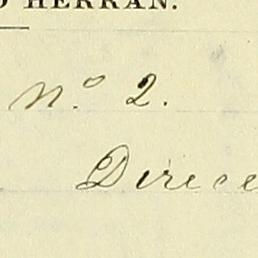 HERRAN.
Nº 2.
Direce